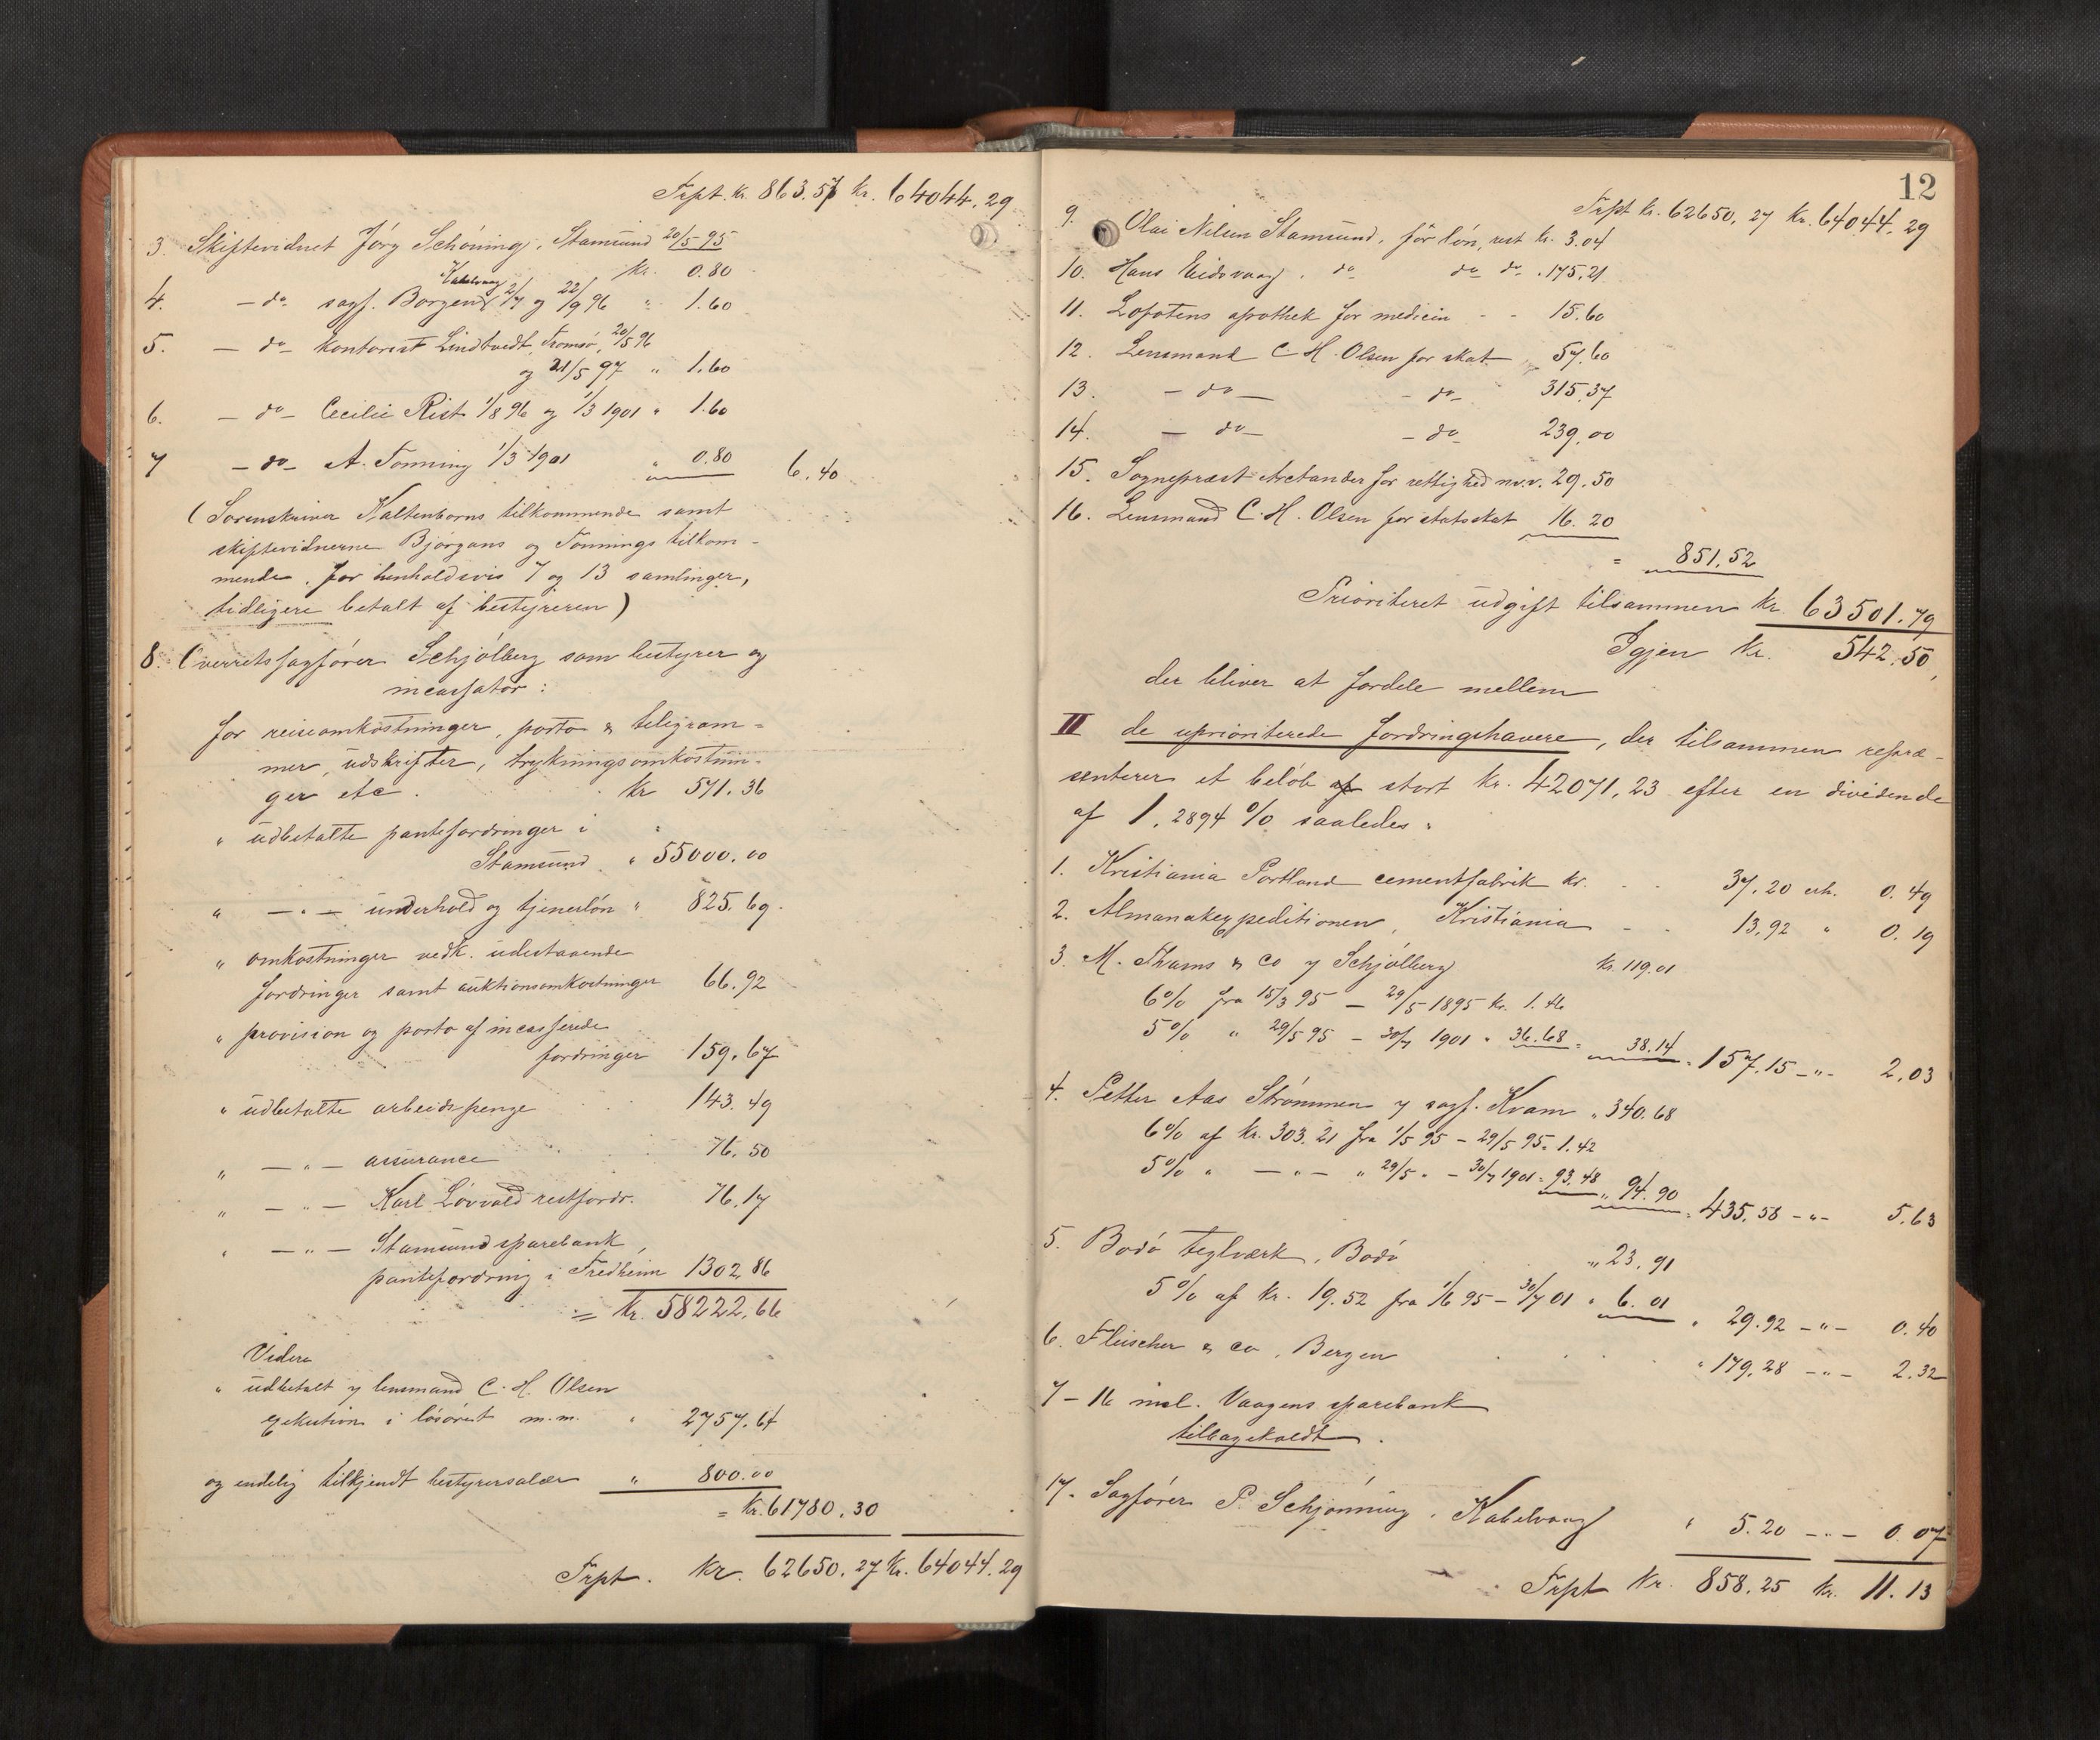 Frpt. kr. 863.57 kr. 64044.29
3. Skiftevidnet Jörg Schöning, Stamsund 20/5 95
kr. 0.80
Kabelvaag
4. - do - sagf. Borgen 2/7 og 22/9 96 " 1.60
5. - do - kontorist Lindtvedt, Tromsö, 20/5 96
og 21/5 97 " 1.60
6. - do - Cecilie Rist 1/8 96 og 1/3 1901 " 1.60
7 - do - A. Fonning 1/3 1901 " 0.80 6.40
(Sorenskriver Kaltenborns tilkommende samt
skiftevidnerne Bjørgans og Fonnings tilkom-
mende, for henholdsvis 7 og 13 samlinger,
tidligere betalt af bestyreren)
8. Overretssagfører Schjølberg som bestyrer og
incassator:
for reiseomkostninger, porto & telegram=
mer, udskrifter, trykningsomkostnin=
ger etc. kr 571.36
" udbetalte pantefordringer i
Stamsund " 55000.00
" - " - underhold og tjenerløn " 825.69.
" omkostninger vedk. udestaaende
fordringer samt auktionsomkostninger 66.92
" provision og porto af incasserede
fordringer 159.67
" udbetalte arbeidspenge 143.49
" - " - assurance 76.50
" - " - Karl Lövvold restfordr. 76.17
" - " - Stamsund sparebank,
pantefordring i Fredheim 1302,86
= kr. 58222.66
Videre
" udbetalt y lensmand C. H. Olsen
exekution i løsøret m.m. " 2757.64
og endelig tilkjendt bestyrersalær " 800.00
= kr. 61780.30
Frpt. kr. 62650.27 kr. 64044.29
12
Frpt kr. 62650,27 kr. 64044,29
9. Olai Nilsen Stamsund, for lön, rest kr. 3.04
10. Hans Eidsvaag, do do do . 175,21
11. Lofotens apothek for medicin - - 15.60
12. Lensmand C. H. Olsen for skat 57.60
13. - do - - do - 315.37
14. - do - - do - 239.00
15. Sognepræst Arctander for rettighed m.v. 29.50
16. Lensmand C. H. Olsen for statsskat 16.20
= 851.52
Prioriteret udgift tilsammen kr. 63501.79
Igjen kr. 542.50,
der bliver at fordele mellem
II de uprioriterede fordringshavere, der tilsammen repræ-
senterer et beløb af stort kr. 42071,23 efter en dividende
af 1,2894 % saaledes:
1. Kristiania Portland cementfabrik kr. - - 37.20 erh. 0.49
2. Almanakexpeditionen, Kristiania - - 13,92 " 0.19
3. M. Thams & Co y Schjølberg kr. 119.01
6% fra 15/3 95 - 29/5 1895 kr. 1.46
5% " 29/5 95 - 30/7 1901 " 36.68 = 38.14 = 157.15 - " - 2,03
4. Petter Aas Strømmen y sagf. Kvam " 340.68
6% af kr. 303.21 fra 1/5 95 - 29/5 95 = 1.42
5% " - " - " 29/5 " - 30/7 1901 = 93.48 " 94.90 = 435.58 - " - 5.63
5. Bodö teglværk, Bodö " 23.91
5% af kr. 19.52 fra 1/6 95 - 30/7 01 " 6.01 " 29.92 - " - 0.40
6. Fleischer & co, Bergen . . . " 179,28 - " - 2.32
7 - 16 incl. Vaagens sparebank
tilbagekaldt.
17. Sagfører P. Schjønning, Kabelvaag " 5.20 - " - 0.07
Frpt kr. 858.25 kr. 11.13